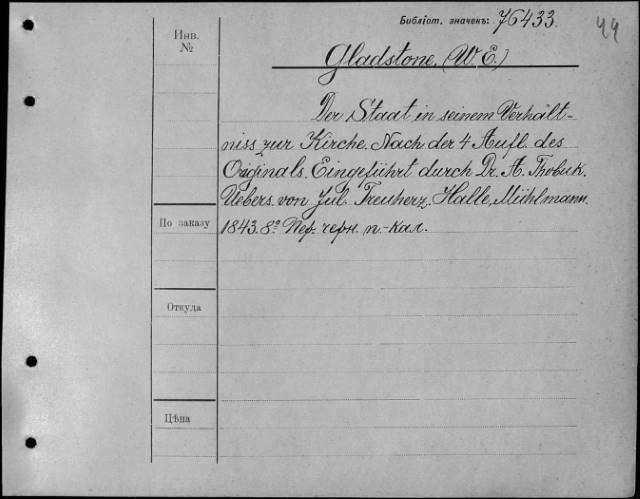 Библіот. значекъ: 76433.
49
Инв.
№
Gladstone, (W. E.)
Der Staat in seinem Verhält-
niss zur Kirche. Nach der 4 Aufl. des
Originals. Eingeführt durch Dr. A. Tholuk.
Uebers. von Jul. Treuherz. Halle, Mühlmann.
По заказу
1843. 8º Пер. черн. п.-кал.
Откуда
Цѣна